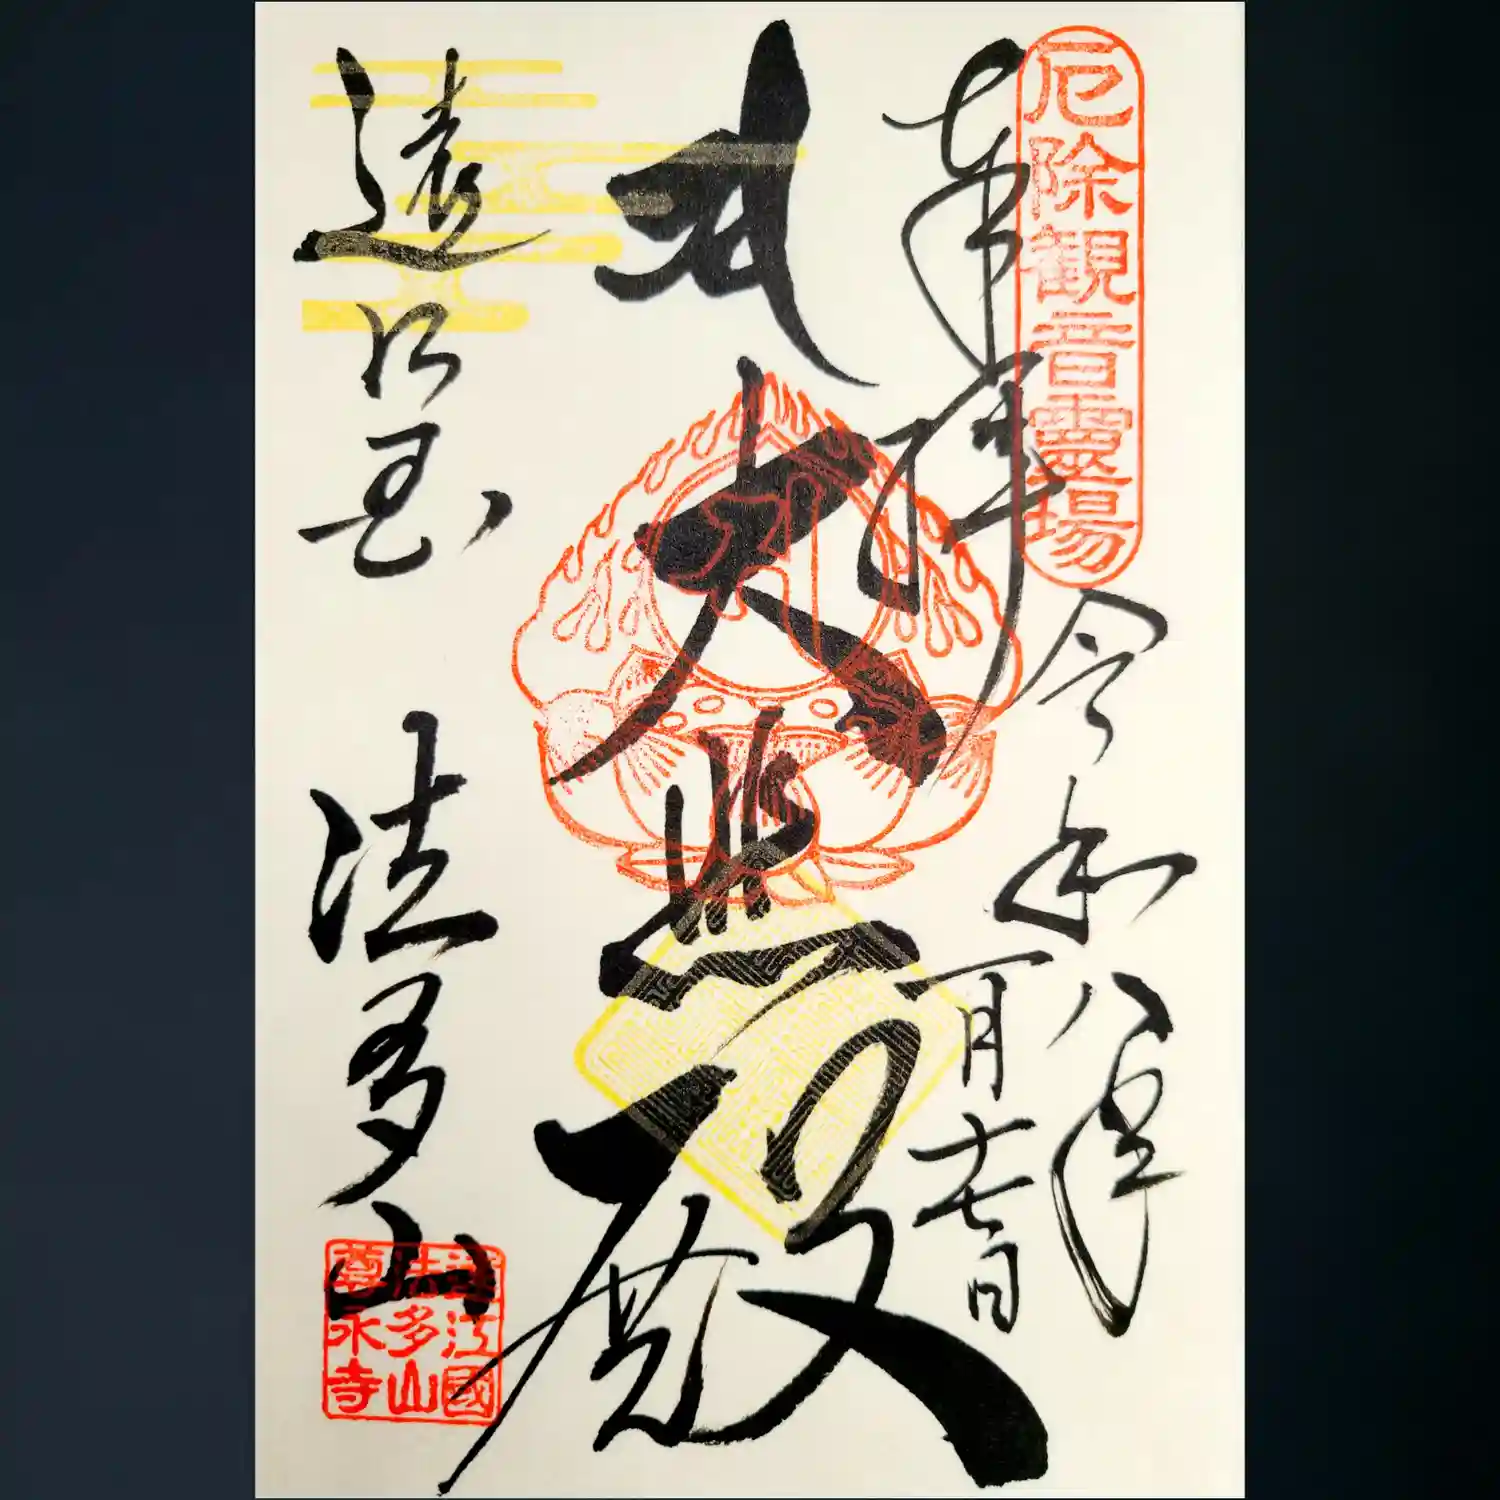 厄除観音靈場
奉拝
令和八年
一月十七日
大悲殿
遠江国 法多山
遠江國
法多山
尊永寺